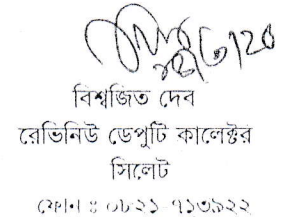 বিশ্বজিত দেব
রেভিনিউ ডেপুটি কালেক্টর
সিলেট
ফোন ঃ ০৮২১-৭১৩৯২২